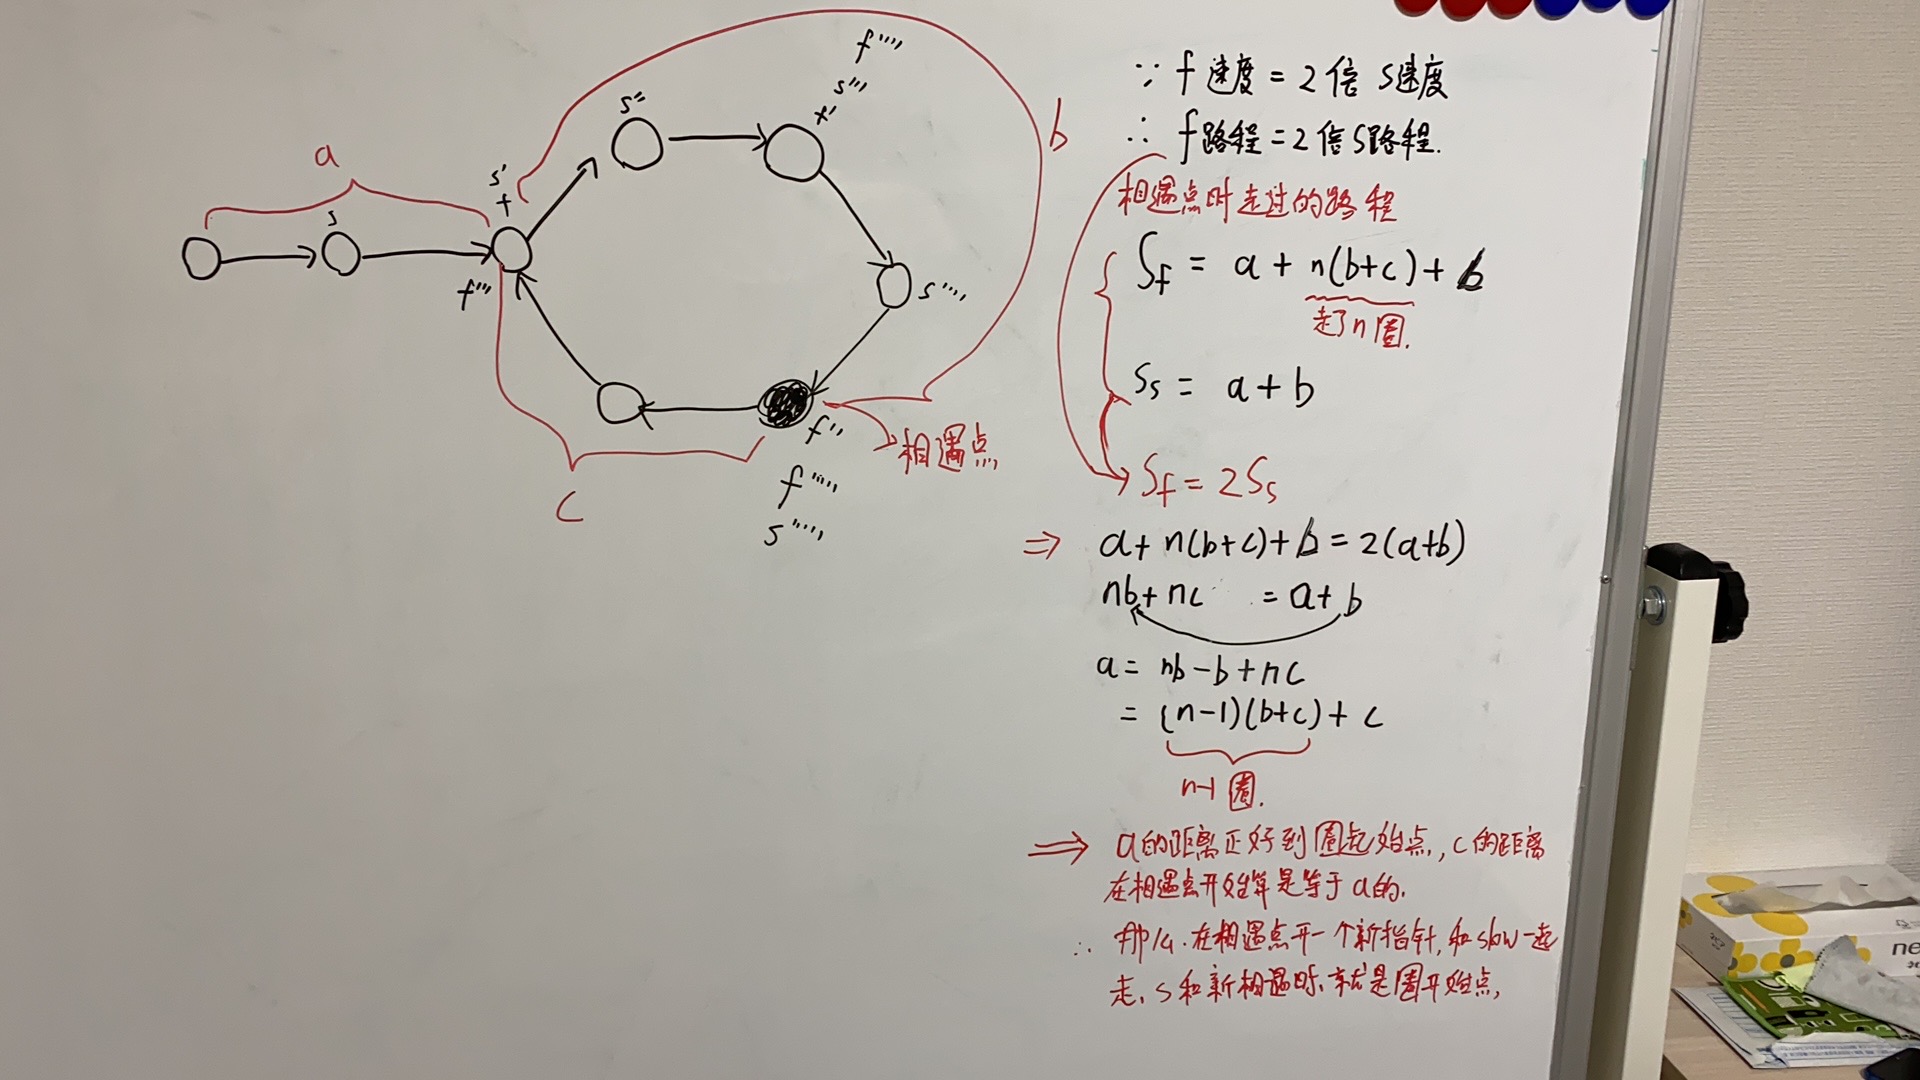 a
s
s'
f
f'''
s''
f''''
s'''
f'
b
s''''
f''
f'''''
s'''''
相遇点
c
∵ f速度 = 2倍 s速度
∴ f路程 = 2倍 s路程.
相遇点时走过的路程
Sf = a + n(b+c) + b
走了n圈.
Ss = a + b
Sf = 2Ss
⇒ a + n(b+c) + b = 2(a+b)
nb + nc = a + b
a = nb - b + nc
= (n-1)(b+c) + c
n-1圈.
⇒ a的距离正好到圈起始点, c的距离
在相遇点开始算是等于a的.
∴ 那么.在相遇点开一个新指针,和slow一起
走、s和新相遇时、就是圈开始点,
ne